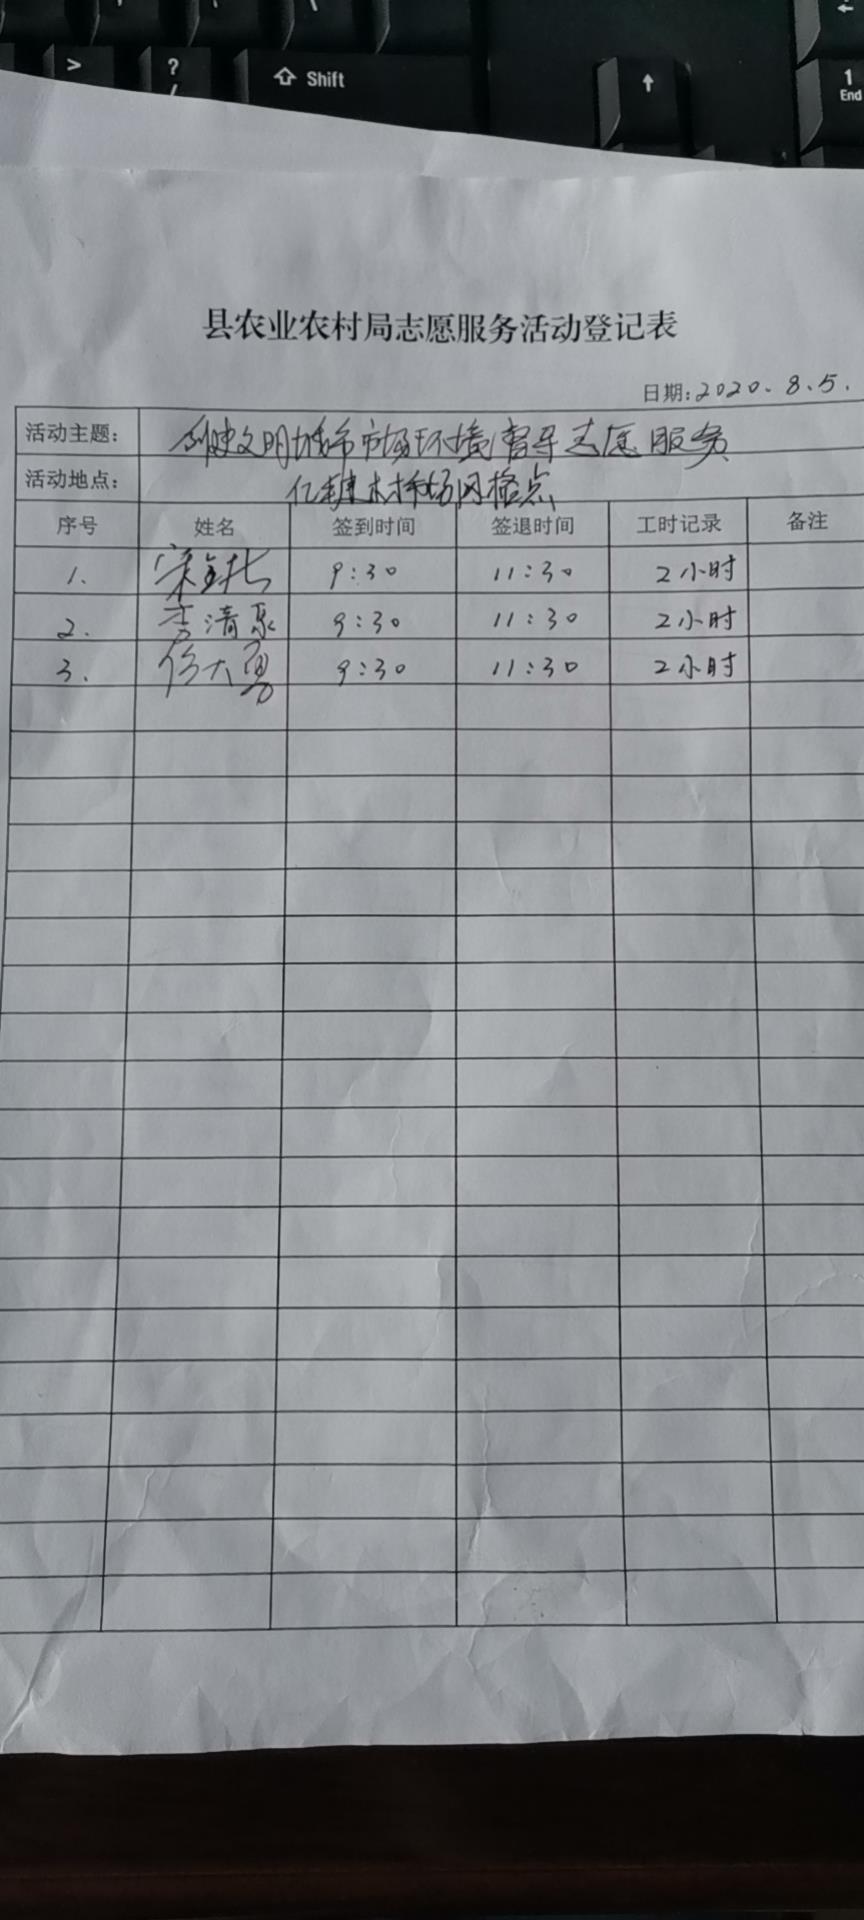 >
?
/
Shift
1
End
县农业农村局志愿服务活动登记表
日期:2020.8.5.
活动主题: 创建文明城市市场环境督导志愿服务
活动地点: 亿丰建材市场网格点
序号 姓名 签到时间 签退时间 工时记录 备注
1. 宋 9:30 11:30 2小时
2. 李清泉 9:30 11:30 2小时
3. 徐大勇 9:30 11:30 2小时